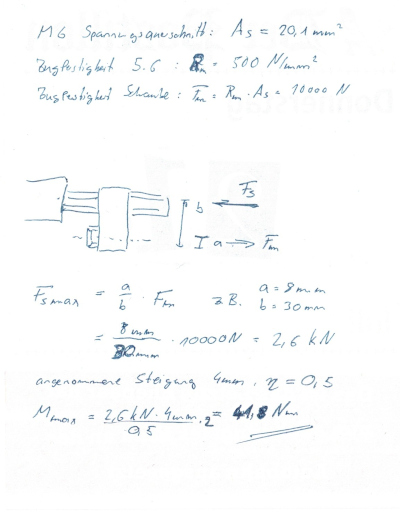 M6 Spannungsquerschnitt: As = 20,1 mm²
Zugfestigkeit 5.6 : Rm = 500 N/mm²
Zugfestigkeit Schraube : Fm = Rm · As = 10000 N
b Fs
a Fm
Fsmax = a/b · Fm z.B. a = 8mm b = 30mm
= 8mm/30mm · 10000N = 2,6 kN
angenommene Steigung 4mm, η = 0,5
Mmax = 2,6 kN · 4mm/0,5 · 2 = 41,8 Nm